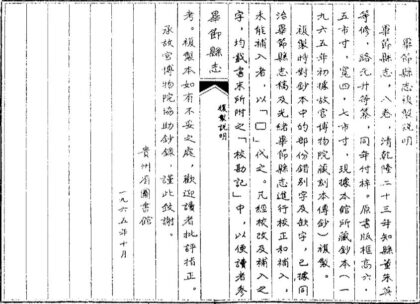 畢節縣志複製説明
畢節縣志，八卷，清乾隆二十三年知縣董朱英
等修，路元升等纂，同年付梓。原書版框高六·
五市寸，寬四·七市寸，現據本館所藏鈔本（一
九六五年初據故宮博物院藏刻本傳鈔）複製。
複製時對鈔本中的部份錯別字及缺字，已據同
治畢節縣志稿及光緒畢節縣志進行校正和補入，
未能補入者，以「□」代之。凡經校改及補入之
字，均載書末所附之「校勘記」中，以便讀者參
畢節縣志
複製説明
考。複製本如有不妥之處，歡迎讀者批評指正。
承故宮博物院協助鈔錄，謹此致謝。
貴州省圖書館
一九六五年十月